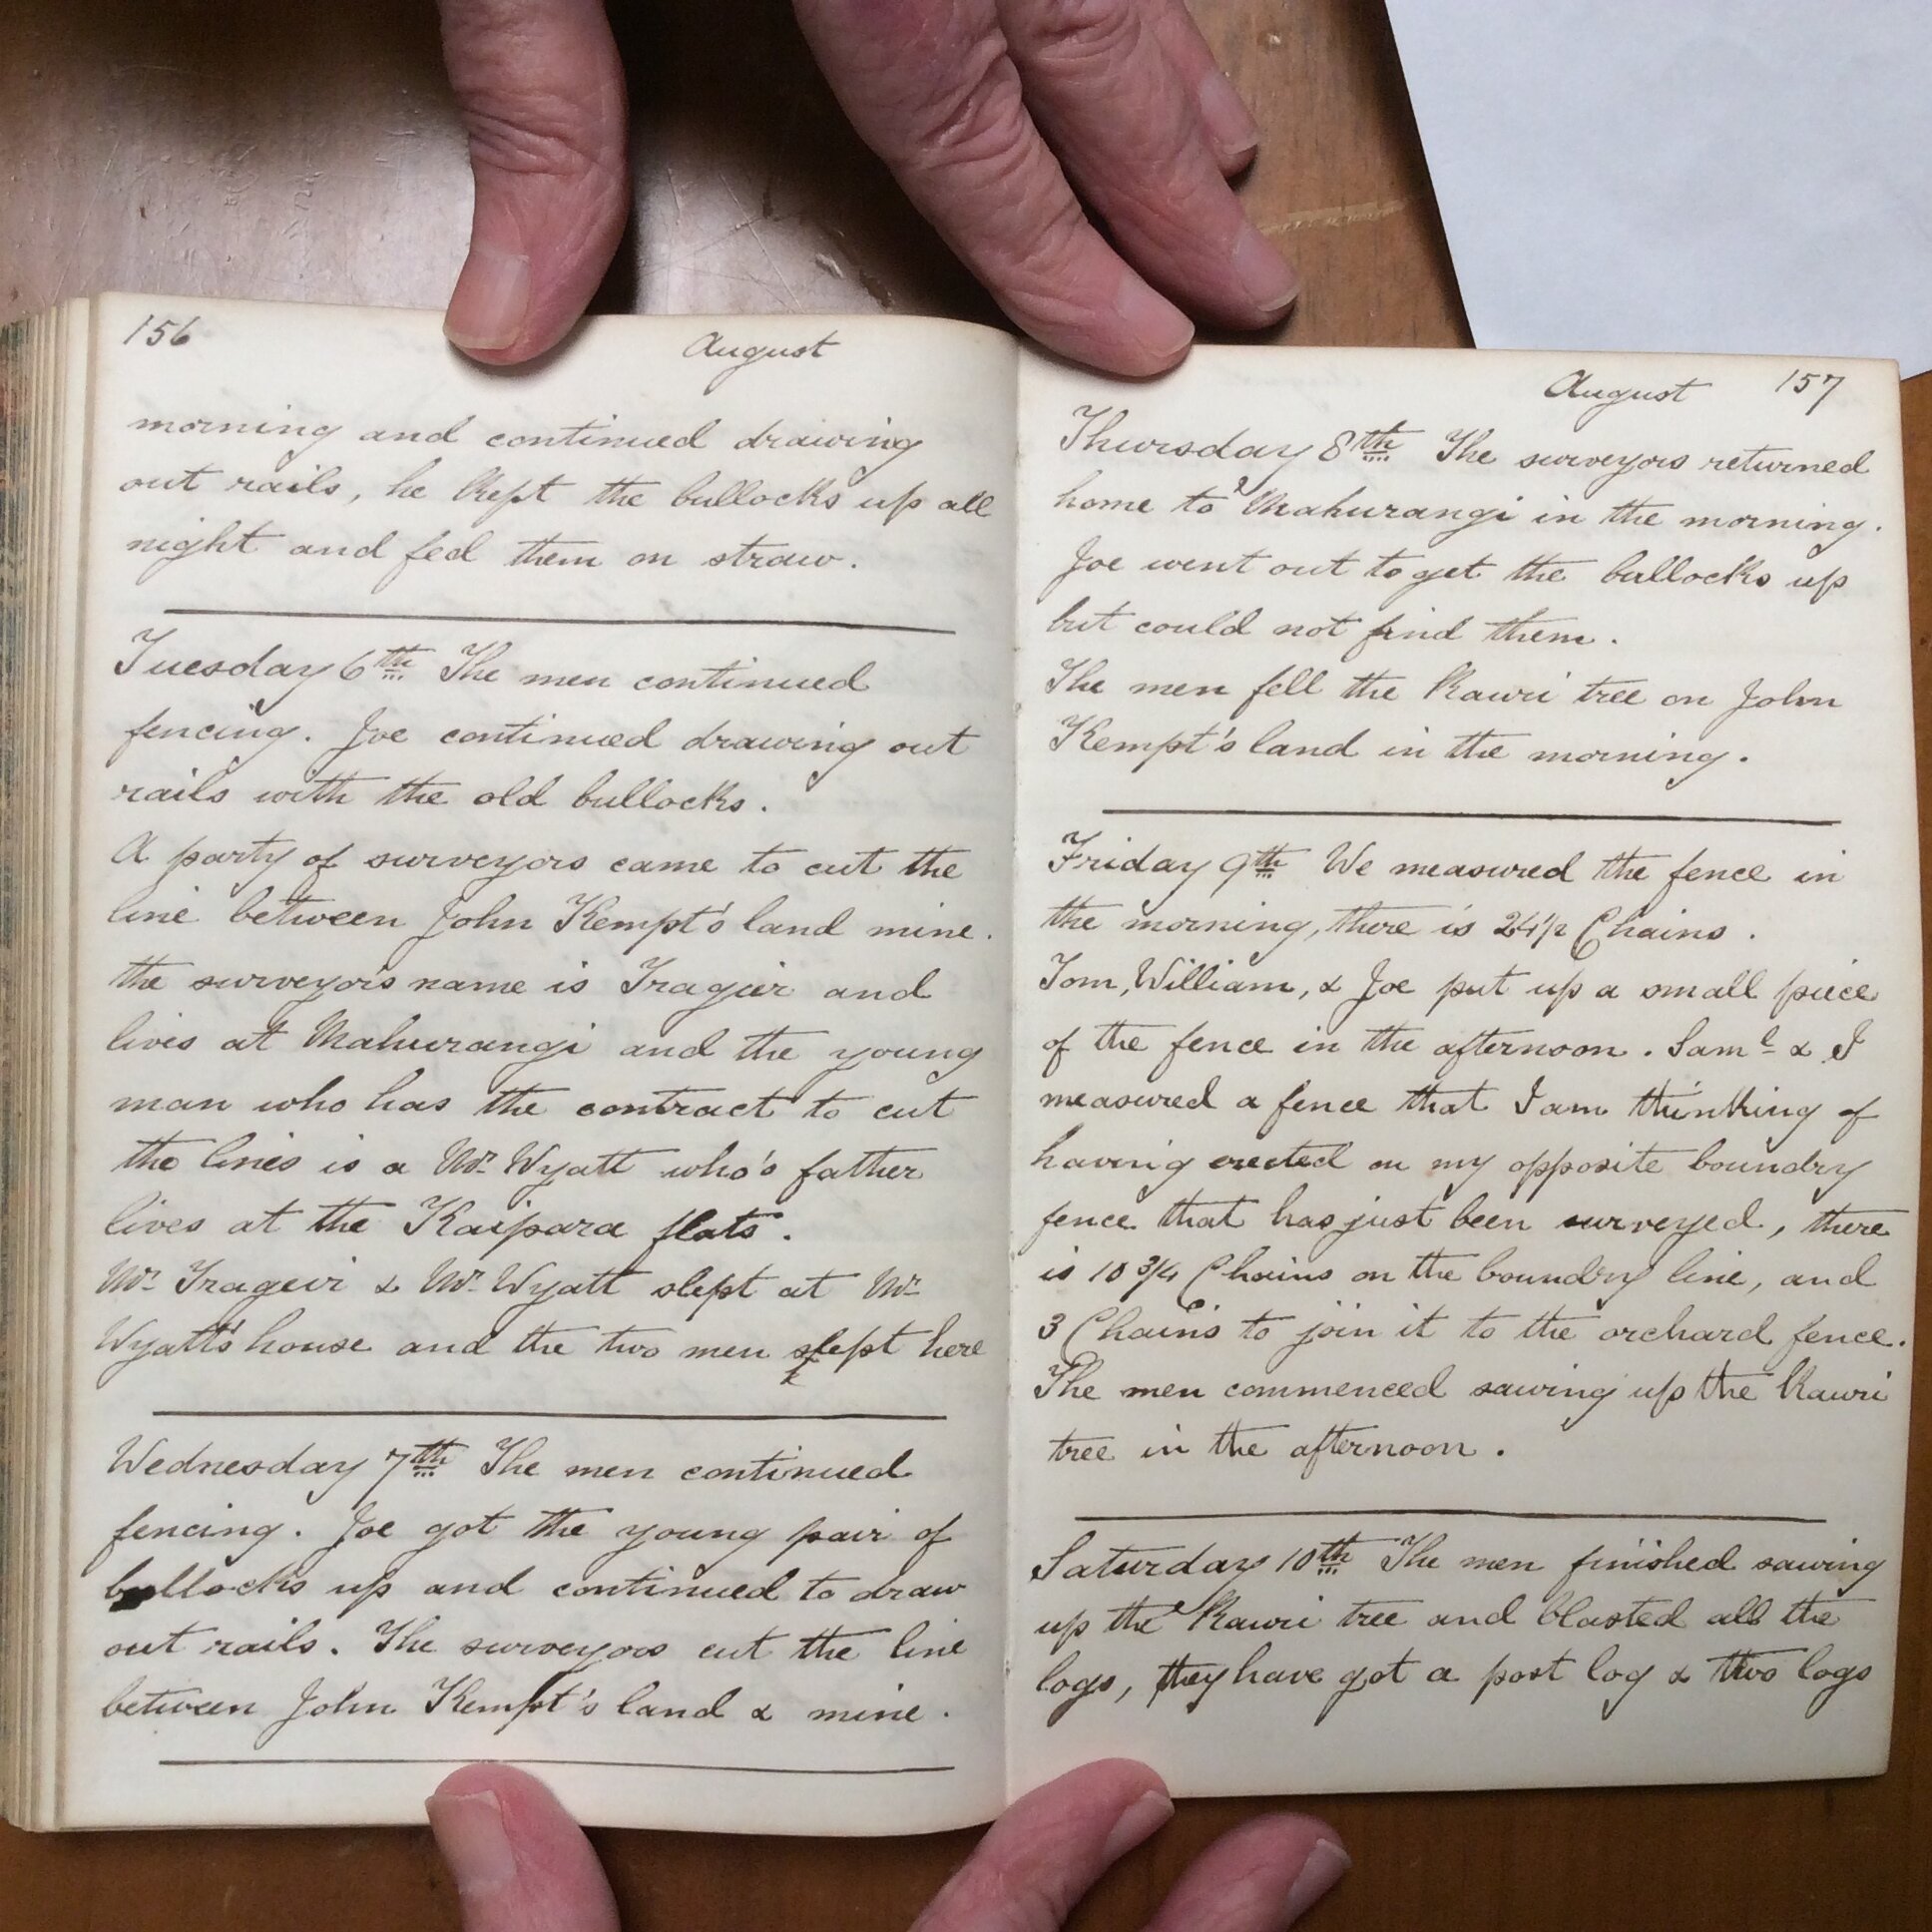 156 August
morning and continued drawing
out rails, he kept the bullocks up all
night and fed them on straw.
Tuesday 6th The men continued
fencing. Joe continued drawing out
rails with the old bullocks.
A party of surveyors came to cut the
line between John Kempt's land mine.
the surveyors name is Tragier and
lives at Mahurangi and the young
man who has the contract to cut
the lines is a Mr Wyatt who's father
lives at the Kaipara flats.
Mr Trageir & Mr Wyatt slept at Mr
Wyatt's house and the two men slept here
Wednesday 7th The men continued
fencing. Joe got the young pair of
bullocks up and continued to draw
out rails. The surveyors cut the line
between John Kempt's land & mine.
August 157
Thursday 8th The surveyors returned
home to Mahurangi in the morning.
Joe went out to get the bullocks up
but could not find them.
The men fell the Kawri tree on John
Kempt's land in the morning.
Friday 9th We measured the fence in
the morning, there is 24½ Chains.
Tom, William, & Joe put up a small piece
of the fence in the afternoon. Saml & I
measured a fence that I am thinking of
having erected on my opposite boundry
fence that has just been surveyed, there
is 10 3/4 Chains on the boundry line, and
3 Chains to join it to the orchard fence.
The men commenced sawing up the Kawri
tree in the afternoon.
Saturday 10th The men finished sawing
up the Kawri tree and blasted all the
logs, they have got a post log & two logs